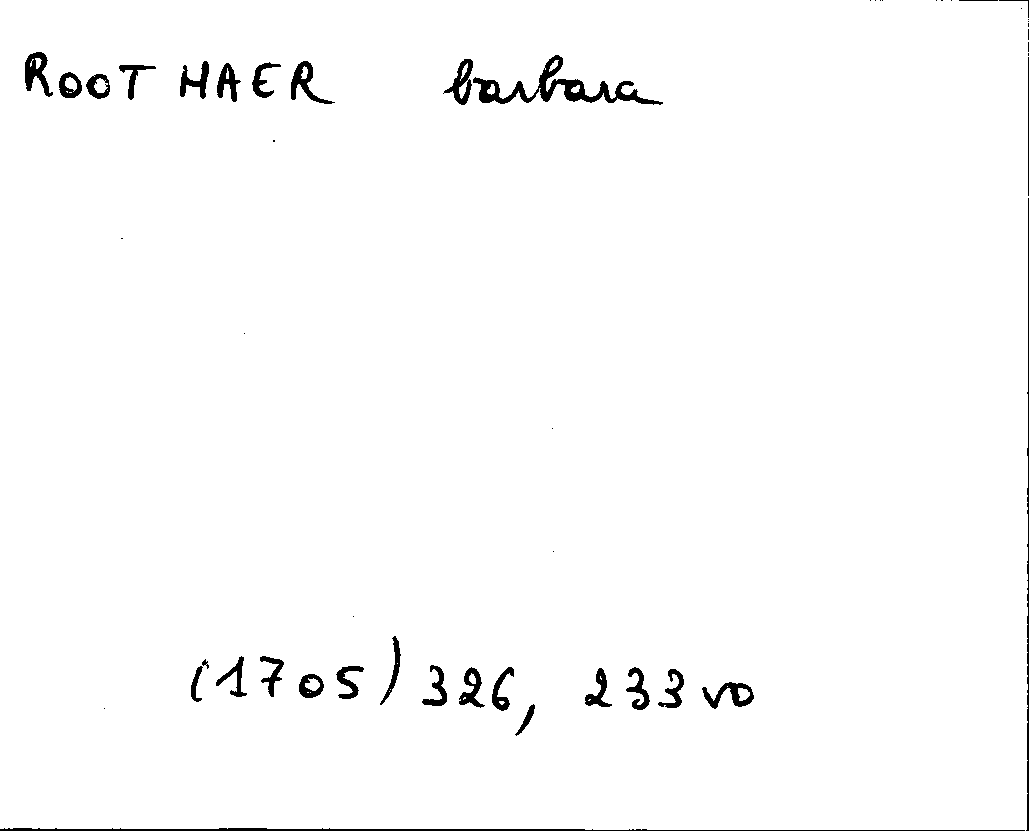 ROOT HAER barbara
(1705) 326, 233 vo